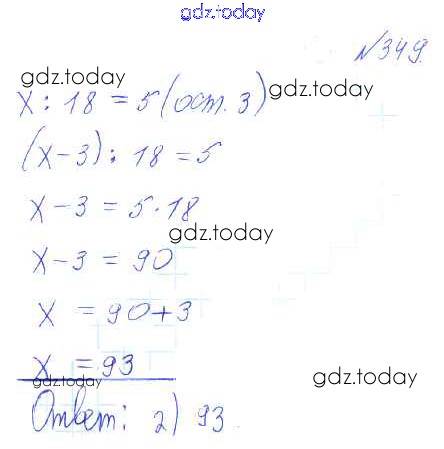 gdz.today
№349.
gdz.today
x : 18 = 5 (ост. 3)
gdz.today
(x-3) : 18 = 5
x-3 = 5·18
gdz.today
x-3 = 90
x = 90+3
x = 93
gdz.today
gdz.today
Ответ: 2) 93.